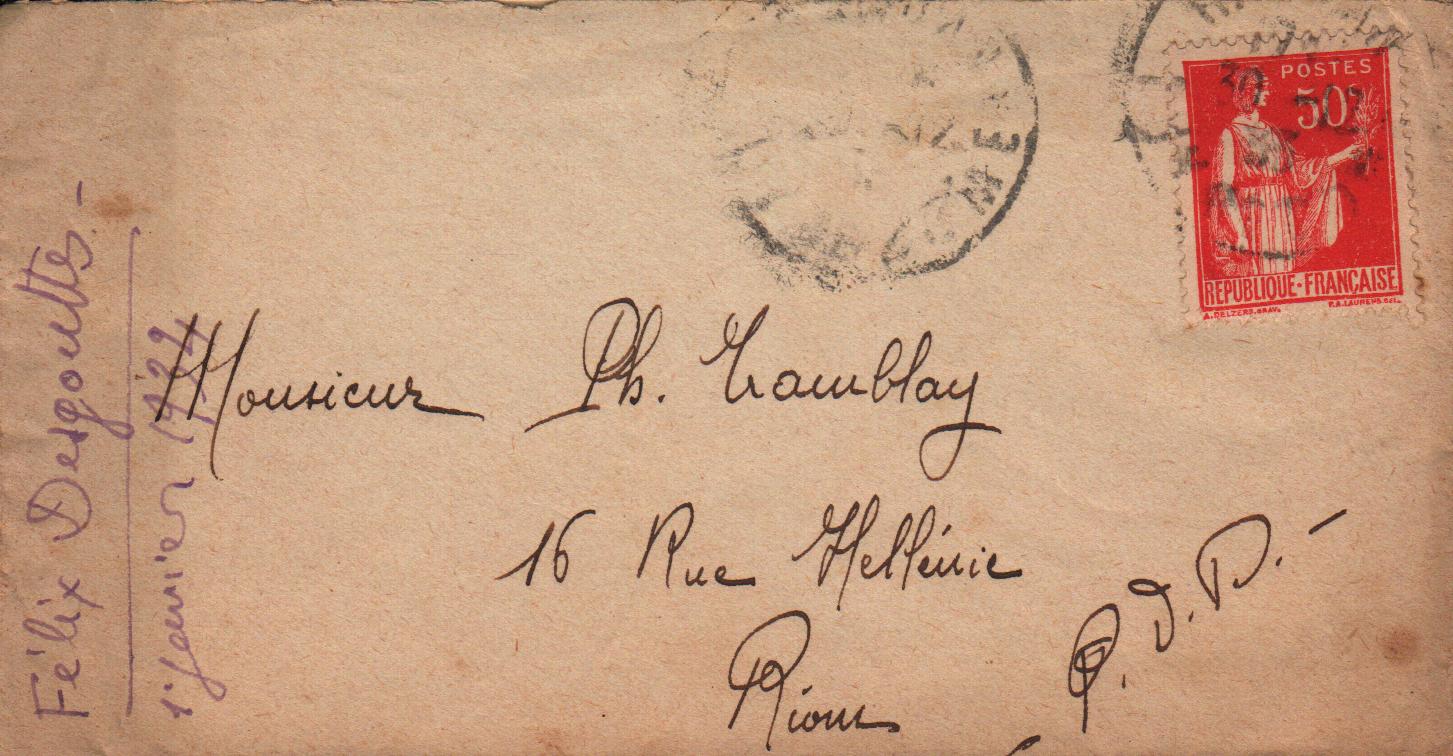 POSTES
50c
REPUBLIQUE·FRANÇAISE
A.DELZERS.GRAV.
P.A.LAURENS.DEL.
Félix Desgouttes -
1er Janvier
Monsieur Ph. Tramblay
16 Rue Hellénie
Riom
P. D. D. -